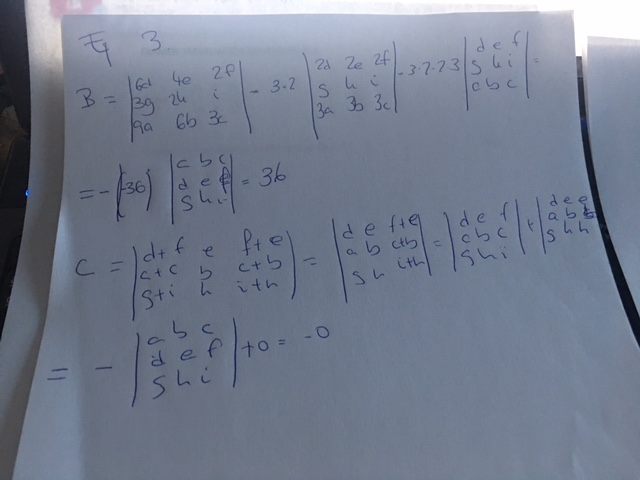 Ej 3
B = |6d 4e 2f; 3g 2h i; 9a 6b 3c| = 3·2 |2d 2e 2f; g h i; 3a 3b 3c| = 3·2·2·3 |d e f; g h i; a b c| =
= -(-36) |a b c; d e f; g h i| = 36
C = |d+f e f+e; a+c b c+b; g+i h i+h| = |d e f+e; a b c+b; g h i+h| = |d e f; a b c; g h i| + |d e e; a b b; g h h|
= - |a b c; d e f; g h i| + 0 = -0